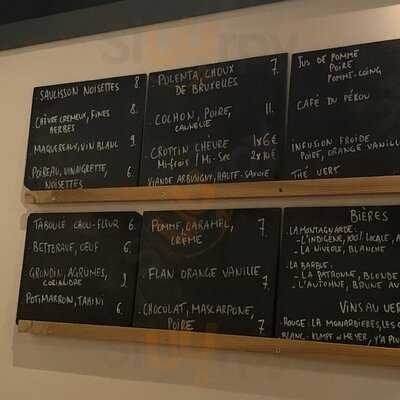 . SAUCISSON NOISETTES 8.
. CHÈVRE CRÉMEUX, FINES 8.
HERBES
MAQUEREAUX, VIN BLANC 9.
POIREAU, VINAIGRETTE, 6.
NOISETTES
. POLENTA, CHOUX 7.
DE BRUXELLES
. COCHON, POIRE, 11.
. CROTTIN CHÈVRE 1x6€
Mi-frais / Mi-Sec 2x10€
VIANDE ARBUSIGNY, HAUTE-SAVOIE
JUS DE POMME
POIRE
POMME-COING
CAFÉ DU PÉROU
INFUSION FROIDE
POIRE, ORANGE VANILLE
THÉ VERT
TABOULÉ CHOU-FLEUR 6.
. BETTERAVE, OEUF 6.
GRONDIN, AGRUMES, 9.
CORIANDRE
POTIMARRON, TAHINI 6.
POMME, CARAMEL, 7.
CRÈME
. FLAN ORANGE VANILLE 7.
. CHOCOLAT, MASCARPONE,
POIRE 7
BIÈRES
. LA MONTAGNARDE:
- L'INDIGÈNE, 100% LOCALE,
- LA NIVÉOLE, BLANCHE
. LA BARBUE:
- LA PATRONNE, BLONDE
- L'AUTOMNE, BRUNE
VINS AU VER
ROUGE: LA MONARDIÈRE, LES
BLANC: